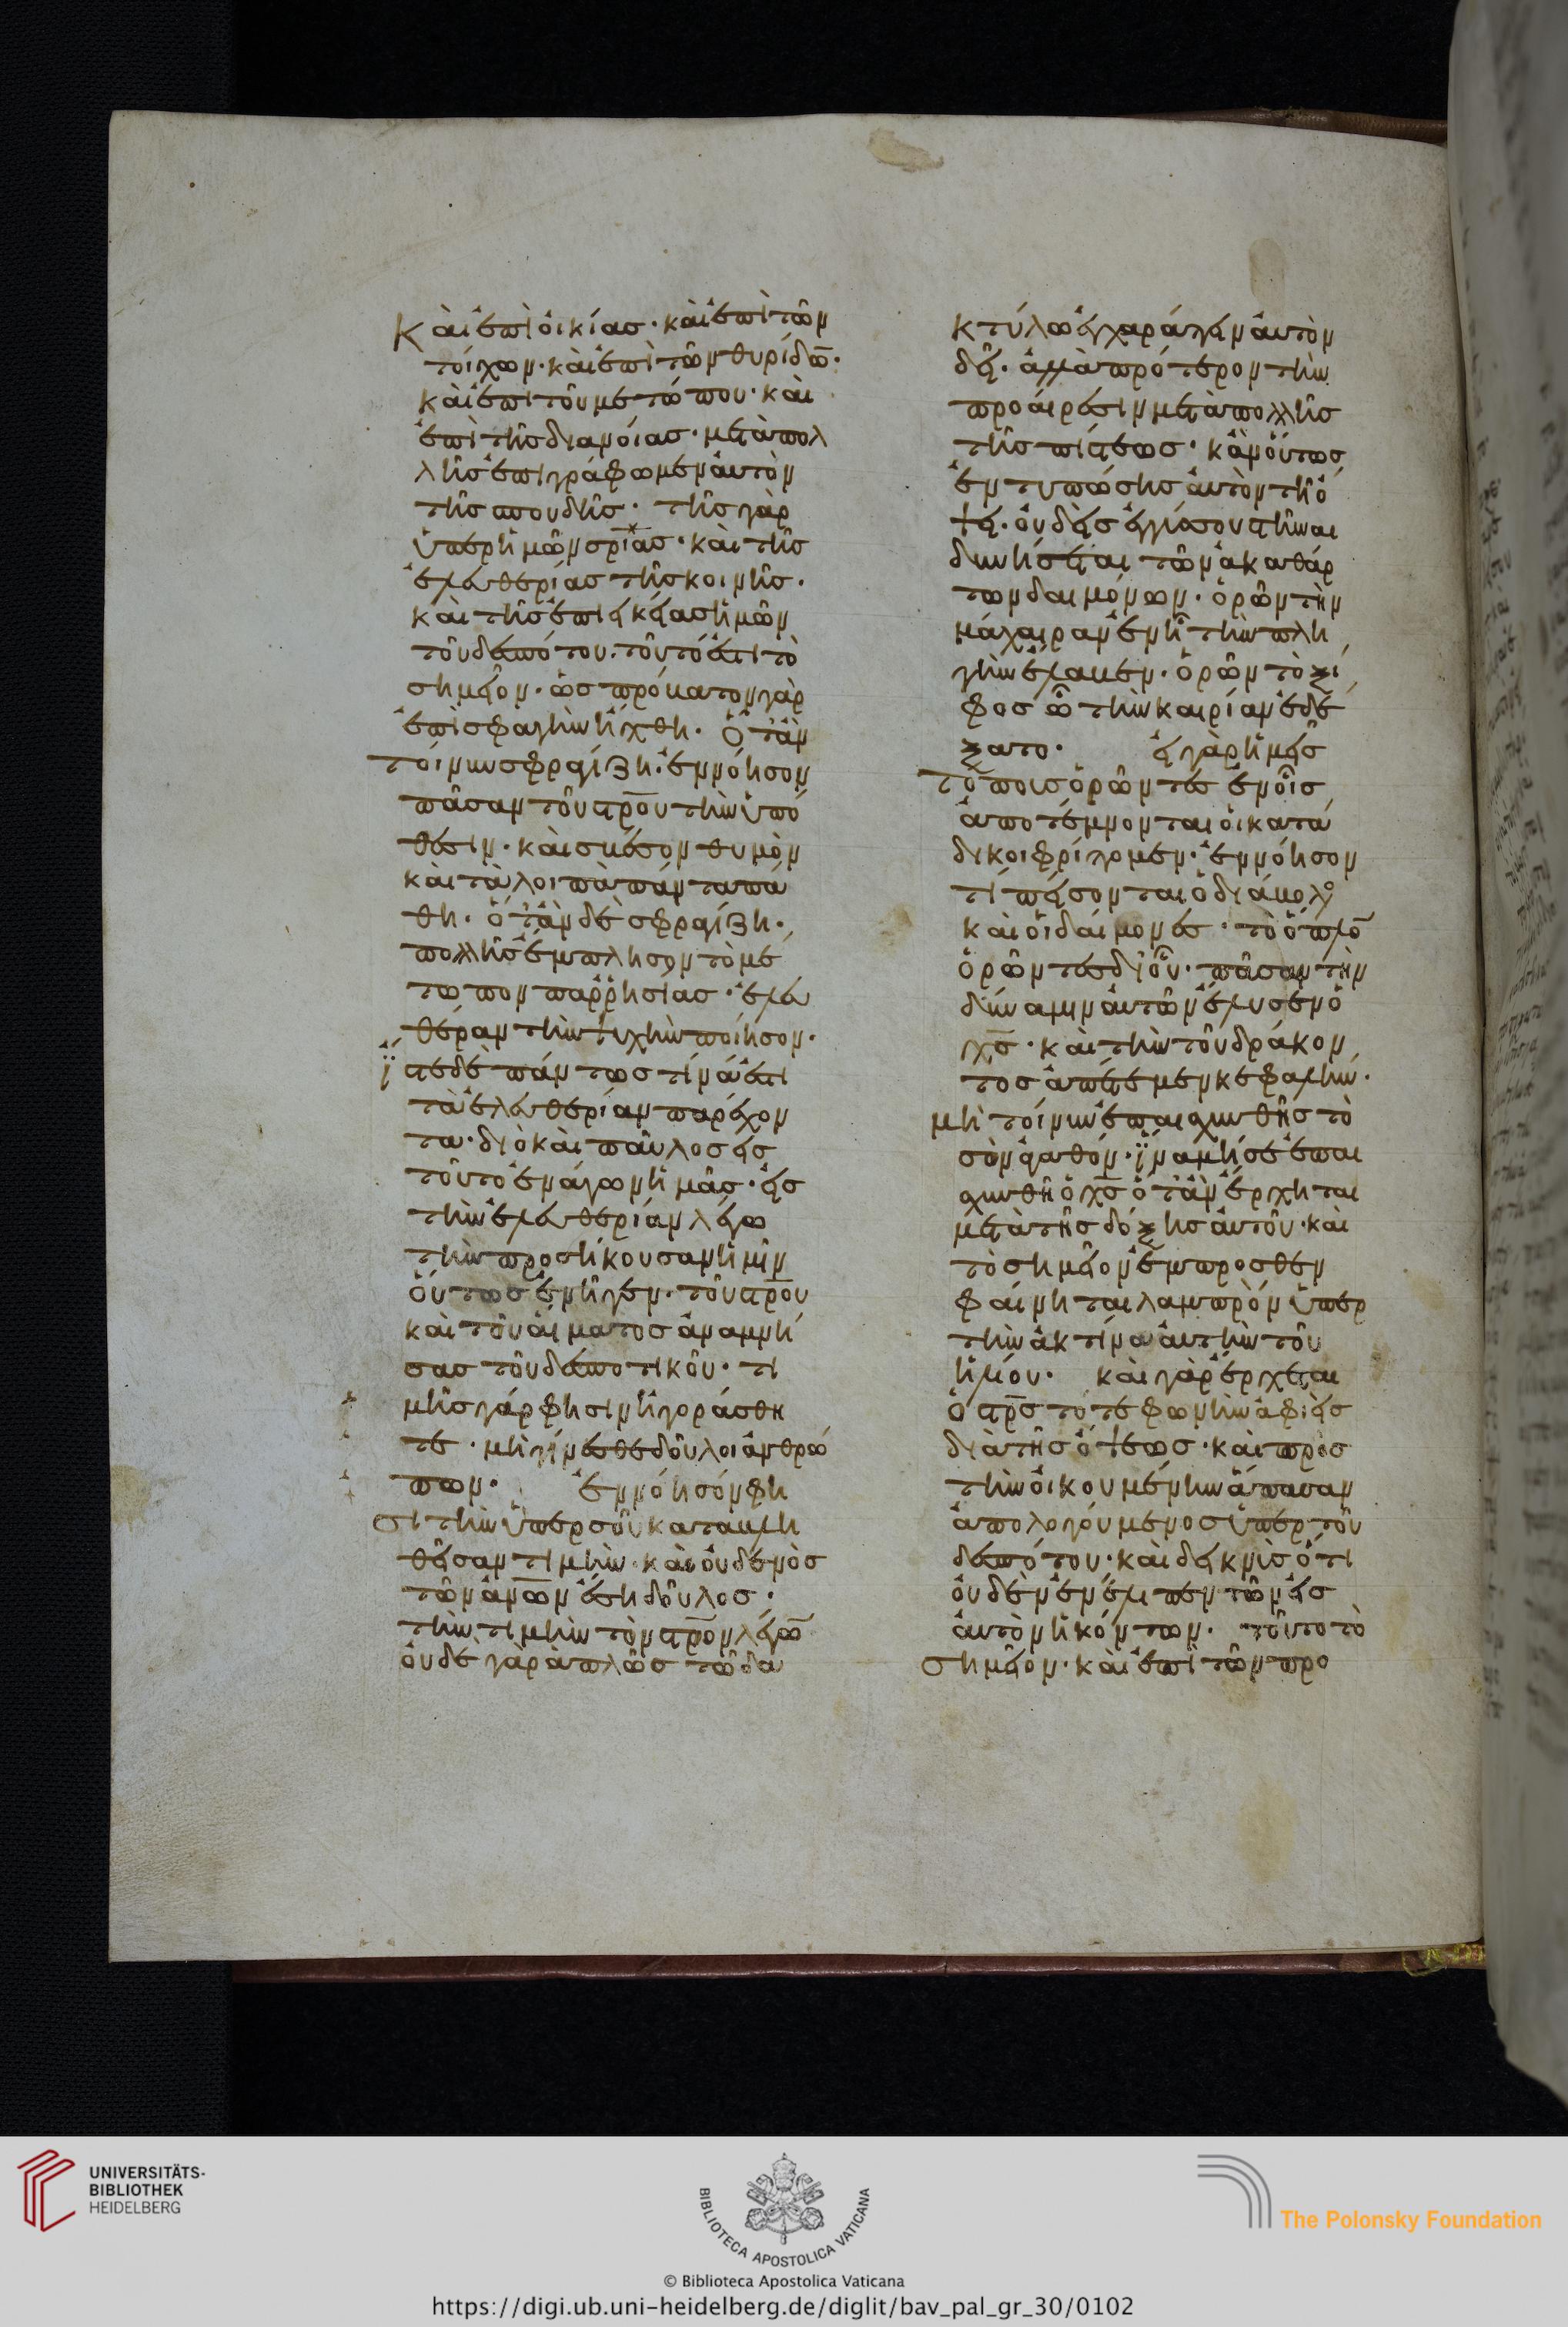 Καὶ ἐπὶ οἰκίας· καὶ ἐπὶ τῶν
τοίχων· καὶ ἐπὶ τῶν θυρίδω̅·
καὶ ἐπὶ τοῦ μετώπου· καὶ
ἐπὶ τῆς διανοίας· μετὰ πολ
λῆς ἐπιγράφωμεν αὐτὸν
τῆς σπουδῆς· τῆς γὰρ
ὑπὲρ ἡμῶν σρ̅ίας· καὶ τῆς
ἐλευθερίας τῆς κοινῆς·
καὶ τῆς ἐπιεικείας ἡμῶν
τοῦ δεσπότου· τοῦτό ἐστι τὸ
σημεῖον· ὡς πρόβατον γὰρ
ἐπὶ σφαγὴν ἤχθη· Ὅταν
τοίνυν σφραγίζη· ἐννόησον
πᾶσαν τοῦ στρ̅ου τὴν ὑπό
θεσιν· καὶ σβέσον θυμὸν
καὶ τὰ λοιπὰ πάντα πά
θη· ὅταν δὲ σφραγίζη·
πολλῆς ἔμπλησον τὸ μέ
τωπον παρρησίας· ἐλευ
θέραν τὴν ψυχὴν ποίησον·
ἴστε δὲ πάντως τίνα ἐστι
τὰ ἐλευθερίαν παρέχον
τα· διὸ καὶ παῦλος εἰς
τοῦτο ἐνάγων ἡμᾶς· εἰς
τὴν ἐλευθερίαν λέγω
τὴν προσήκουσαν ἡμῖν
οὕτως ἐνῆγεν· τοῦ στρ̅ου
καὶ τοῦ αἵματος ἀναμνή
σας τοῦ δεσποτικοῦ· τι
μῆς γάρ φησιν ἠγοράσθη
τε· μὴ γίνεσθε δοῦλοι ἀνθρώ
πων· ἐννόησόν φη
σι τὴν ὑπὲρ σοῦ καταβλη
θεῖσαν τιμὴν· καὶ οὐδενὸς
τῶν ἀν̅ων ἔση δοῦλος·
τὴν τιμὴν τὸν στρ̅ον λέγω̅
οὐδὲ γὰρ ἁπλῶς τῶ δα
κτύλω ἐγχαράγειν αὐτὸν
δεῖ· ἀλλὰ πρότερον τῆ
προαιρέσει μετὰ πολλῆς
τῆς πίστεως· κἂν οὕτως
ἐντυπώσης αὐτὸν τῆ ὄ
ψει· οὐδεὶς ἐγγύς σου στῆναι
δυνήσεται τῶν ἀκαθάρ
των δαιμόνων· ὁρῶν τὴν
μάχαιραν ἐν ἧ τὴν πλη
γὴν ἔλαβεν· ὁρῶν τὸ ξί
φος ὧ τὴν καιρίαν ἐδέ
ξατο· εἰ γὰρ ἡμεῖς
τόπους ὁρῶντες ἐν οἷς
ἀποτέμνονται οἱ κατά
δικοι φρίγομεν· ἐννόησον
τί πείσονται ὁ διάβολο
καὶ οἱ δαίμονες· τὸ ὅπλο̅
ὁρῶντες δι' οὗ· πᾶσαν τὴν
δύναμιν αὐτῶν ἔλυσεν ὁ
χ̅ς· καὶ τὴν τοῦ δράκον
τος ἀπέτεμεν κεφαλήν·
μὴ τοίνυν ἐπαισχυνθῆς τὸ
σὸν ἀγαθόν· ἵνα μή σε ἐπαι
σχυνθῆ ὁ χ̅ς ὅταν ἔρχηται
μετὰ τῆς δόξης αὐτοῦ· καὶ
τὸ σημεῖον ἔμπροσθεν
φαίνηται λαμπρὸν ὑπὲρ
τὴν ἀκτῖνα αὐτὴν τοῦ
ἡλίου· καὶ γὰρ ἔρχεται
ὁ στρ̅ς τότε φωνὴν ἀφιεὶς
διὰ τῆς ὄψεως· καὶ πρὸς
τὴν οἰκουμένην ἅπασαν
ἀπολογούμενος ὑπὲρ τοῦ
δεσπότου· καὶ δεικνὺς ὅτι
οὐδὲν ἐνέλιπεν τῶν εἰς
αὐτὸν ἡκόντων· τοῦτο τὸ
σημεῖον· καὶ ἐπὶ τῶν προ
UNIVERSITÄTS-
BIBLIOTHEK
HEIDELBERG
BIBLIOTECA APOSTOLICA VATICANA
The Polonsky Foundation
© Biblioteca Apostolica Vaticana
https://digi.ub.uni-heidelberg.de/diglit/bav_pal_gr_30/0102